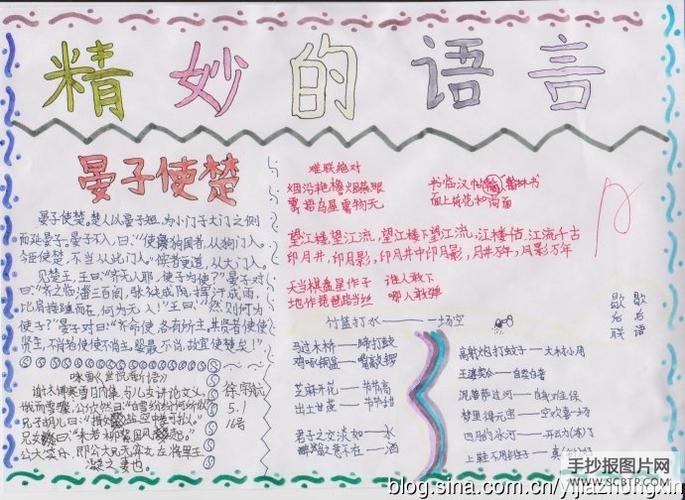 精妙的语言
晏子使楚
晏子使楚。楚人以晏子短,为小门于大门之侧
而延晏子。晏子不入,曰:“使狗国者,从狗门入。
今臣使楚,不当从此门入。”傧者更道,从大门入。
见楚王,王曰:“齐无人耶,使子为使?”晏子对
曰:“齐之临淄三百闾,张袂成阴,挥汗成雨,
比肩接踵而在,何为无人!”王曰:“然则何为
使子?”晏子对曰:“齐命使,各有所主,其贤者使使
贤王,不肖者使使不肖王。婴最不肖,故宜使楚矣!”
咏雪《世说新语》
谢太傅寒雪日内集,与儿女讲论文义。
俄而雪骤,公欣然曰:“白雪纷纷何所似
兄子胡儿曰:“撒盐空中差可拟。”
兄女曰:“未若柳絮因风起。”
公大笑乐。即公大兄无奕女,左将军王
凝之妻也。
徐宇航
5.1
16号
难联绝对
烟沿艳檐烟燕眼
书临汉帖翰林书
画上荷花和尚画
望江楼,望江流,望江楼下望江流,江楼千古,江流千古
印月井,印月影,印月井中印月影,月井万年,月影万年
天当棋盘星作子 谁人敢下
地作琵琶路当丝 哪人敢弹
歇后语
歇后联
竹篮打水——一场空
马过木桥——蹄打鼓
鸡啄铜盆——嘴敲锣
芝麻开花——节节高
出土甘蔗——节节甜
君子之交淡如——水
高射炮打蚊子——大材小用
泥菩萨过河——自身难保
梦里得元宝——空欢喜一场
手抄报图片网
WWW.SCBTP.COM
blog.sina.com.cn/yijiazhongxin